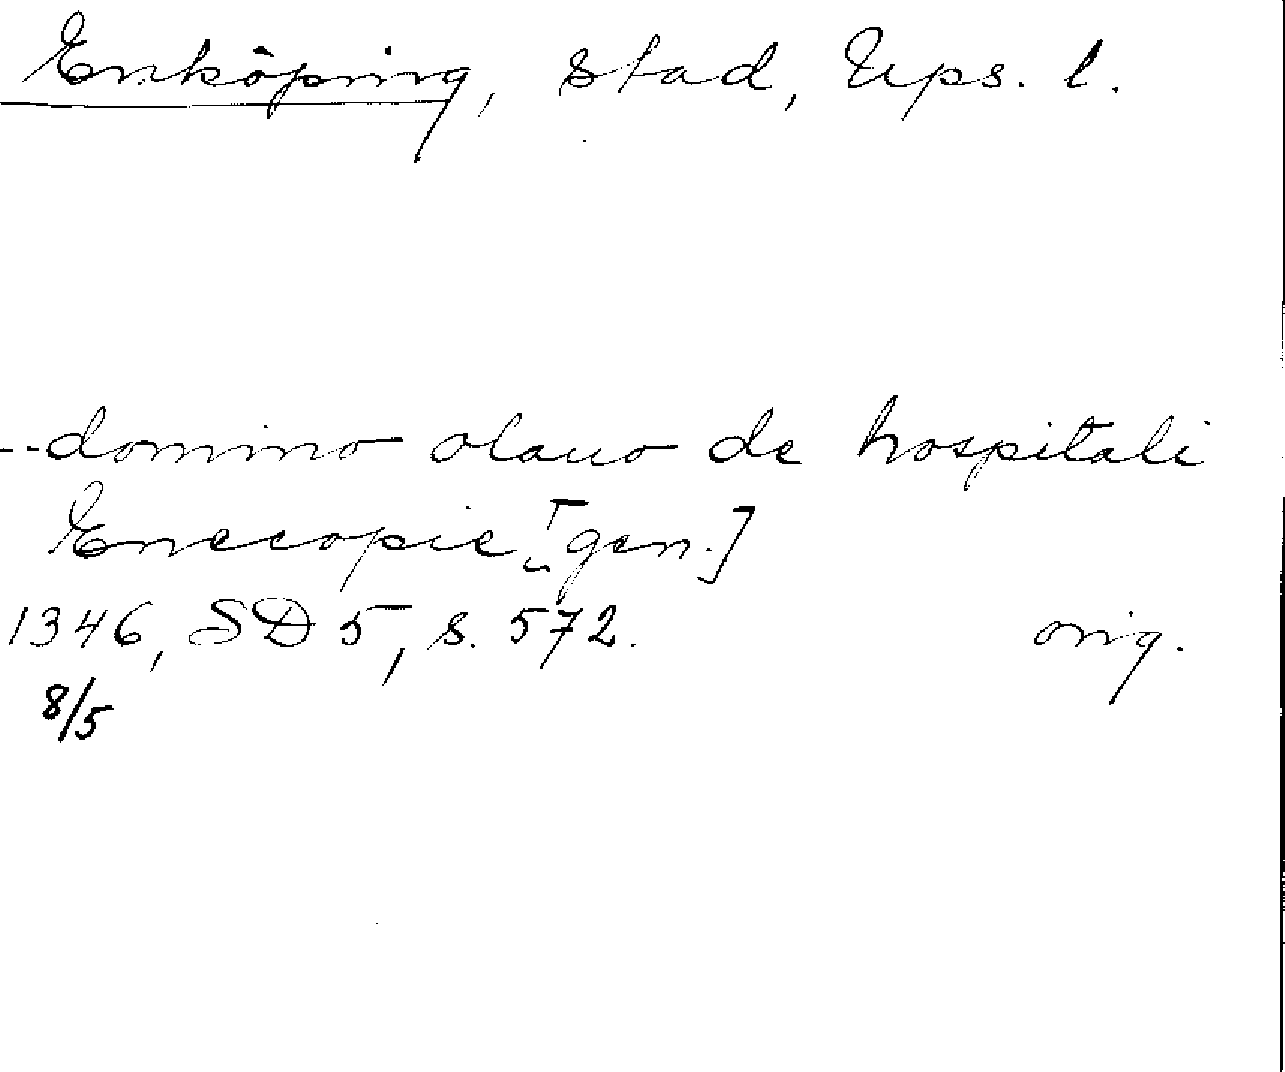 Enköping, stad, Ups. l.
--domino olauo de hospitali
Enecopie [gen.]
1346, SD 5, s. 572. orig.
8/5